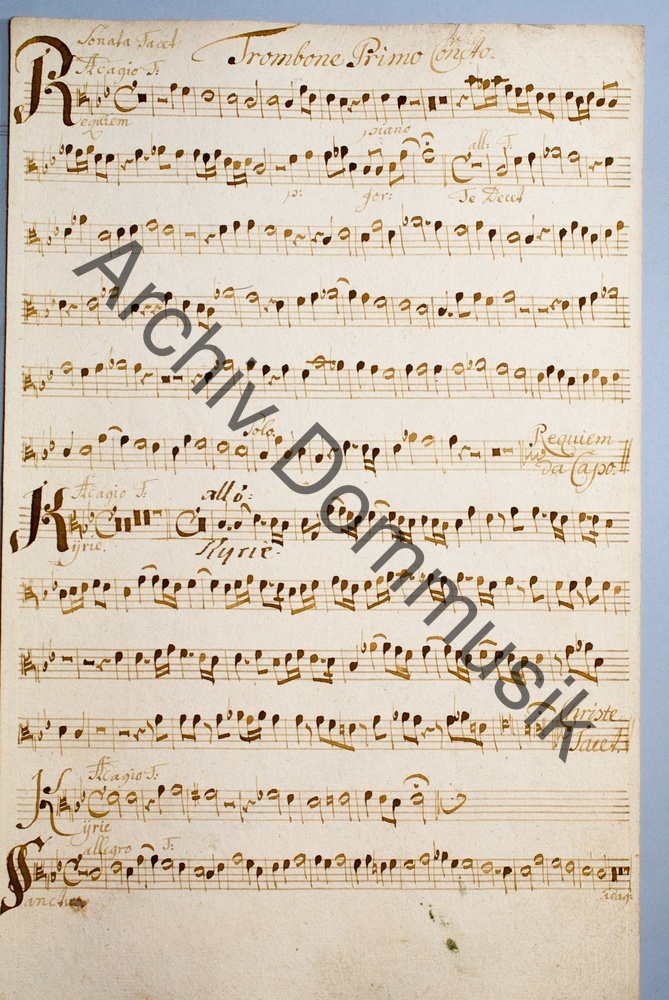 Sonata Tacet
Trombone Primo Concto.
Adagio T:
Requiem
piano
all: T:
p:
for:
Te Decet
Solo:
Requiem
da Capo.
Adagio T:
allo:
Kÿrie.
Kyrie
Christe
Tacet.
Adagio T:
Kÿrie
allegro T:
Sanctus
adag:
Archiv Dommusik